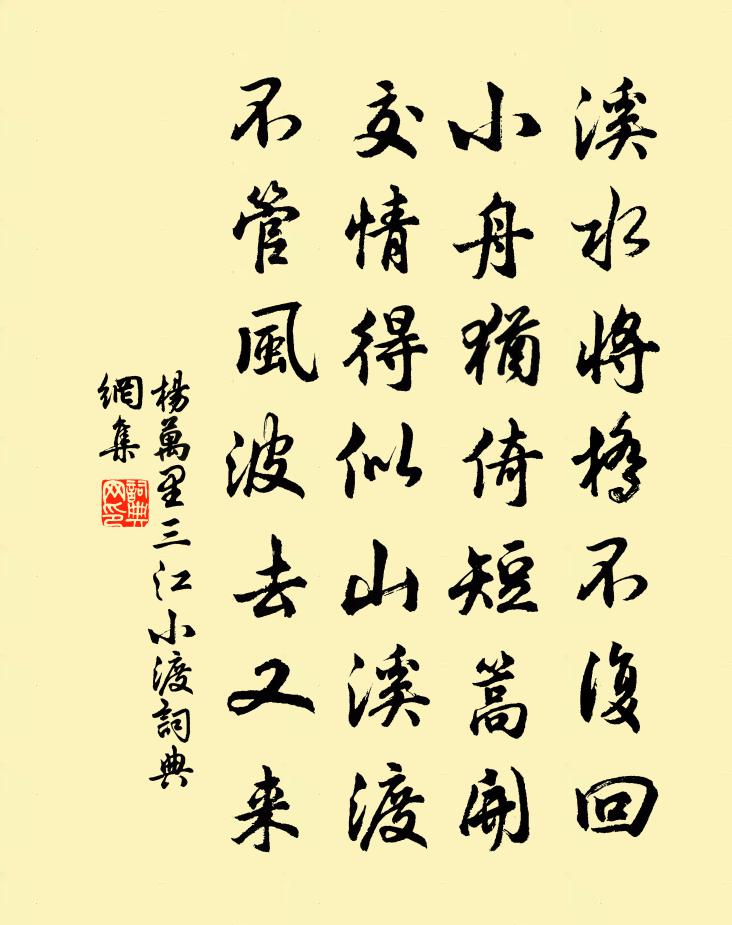 溪水將橋不復回
小舟猶倚短篙開
交情得似山溪渡
不管風波去又来
楊萬里三江小渡詞典
網集
詞典网印